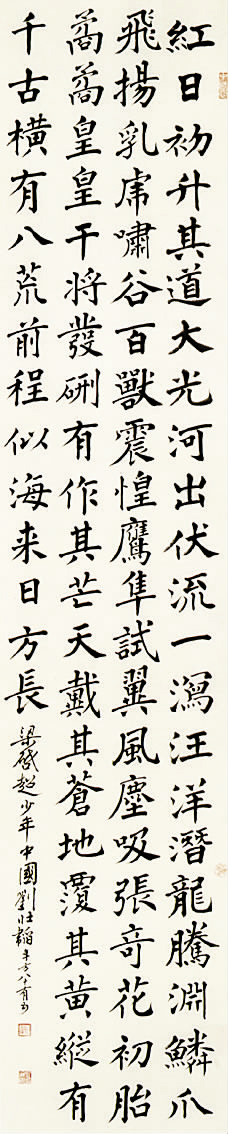 紅日初升其道大光河出伏流一瀉汪洋潛龍騰淵鱗爪
飛揚乳虎嘯谷百獸震惶鷹隼試翼風塵吸張奇花初胎
矞矞皇皇干將發硎有作其芒天戴其蒼地覆其黃縱有
千古橫有八荒前程似海来日方長
梁啓超少年中國劉壯韜